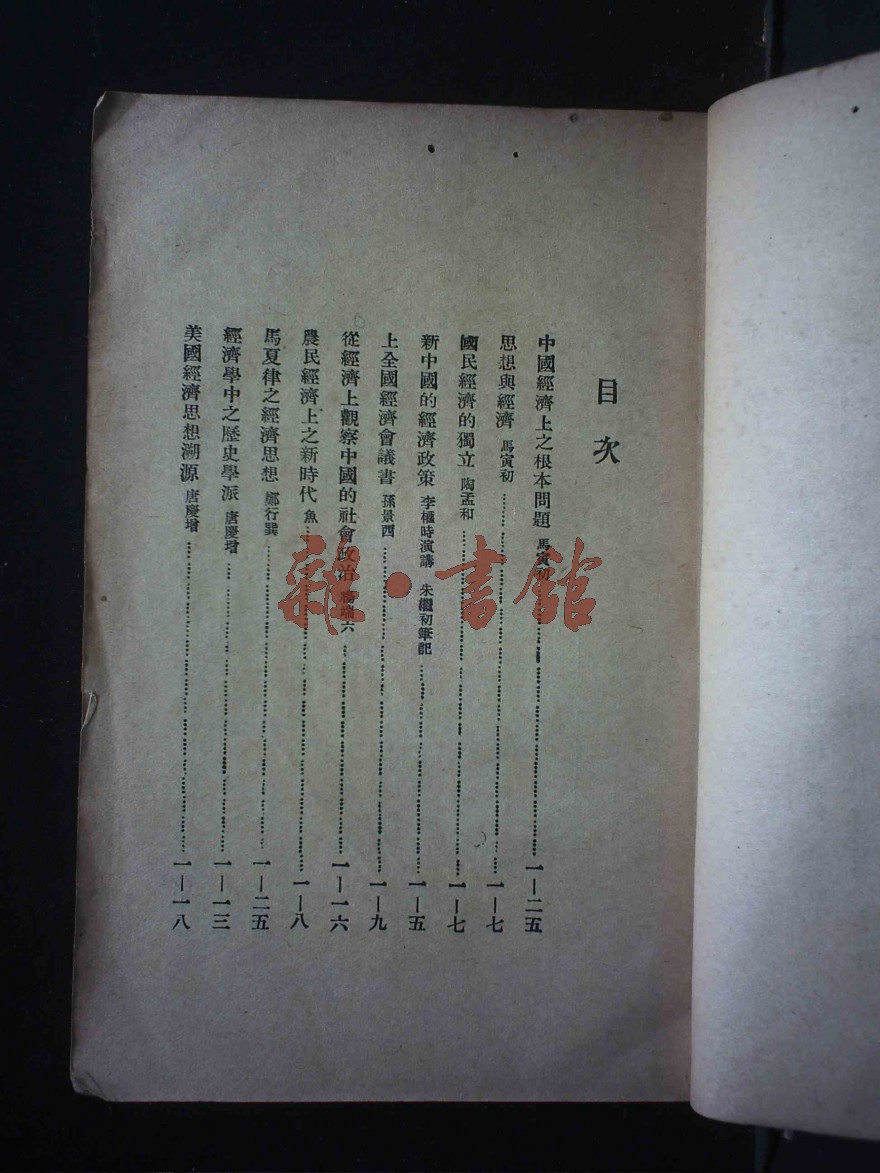 目次
中國經濟上之根本問題 馬寅初……一—二五
思想與經濟 馬寅初……一—七
國民經濟的獨立 陶孟和……一—七
新中國的經濟政策 李權時演講 朱繼初筆記……一—五
上全國經濟會議書 孫景西……一—九
從經濟上觀察中國的社會政治 楊端六……一—一六
農民經濟上之新時代 魚……一—八
馬夏律之經濟思想 鄭行巽……一—二五
經濟學中之歷史學派 唐慶增……一—一三
美國經濟思想溯源 唐慶增……一—一八
雜·書館